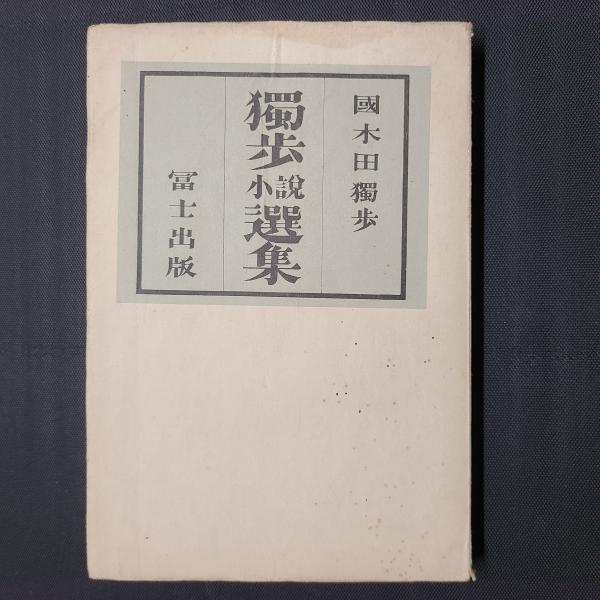 國木田獨步
獨步小說選集
冨士出版